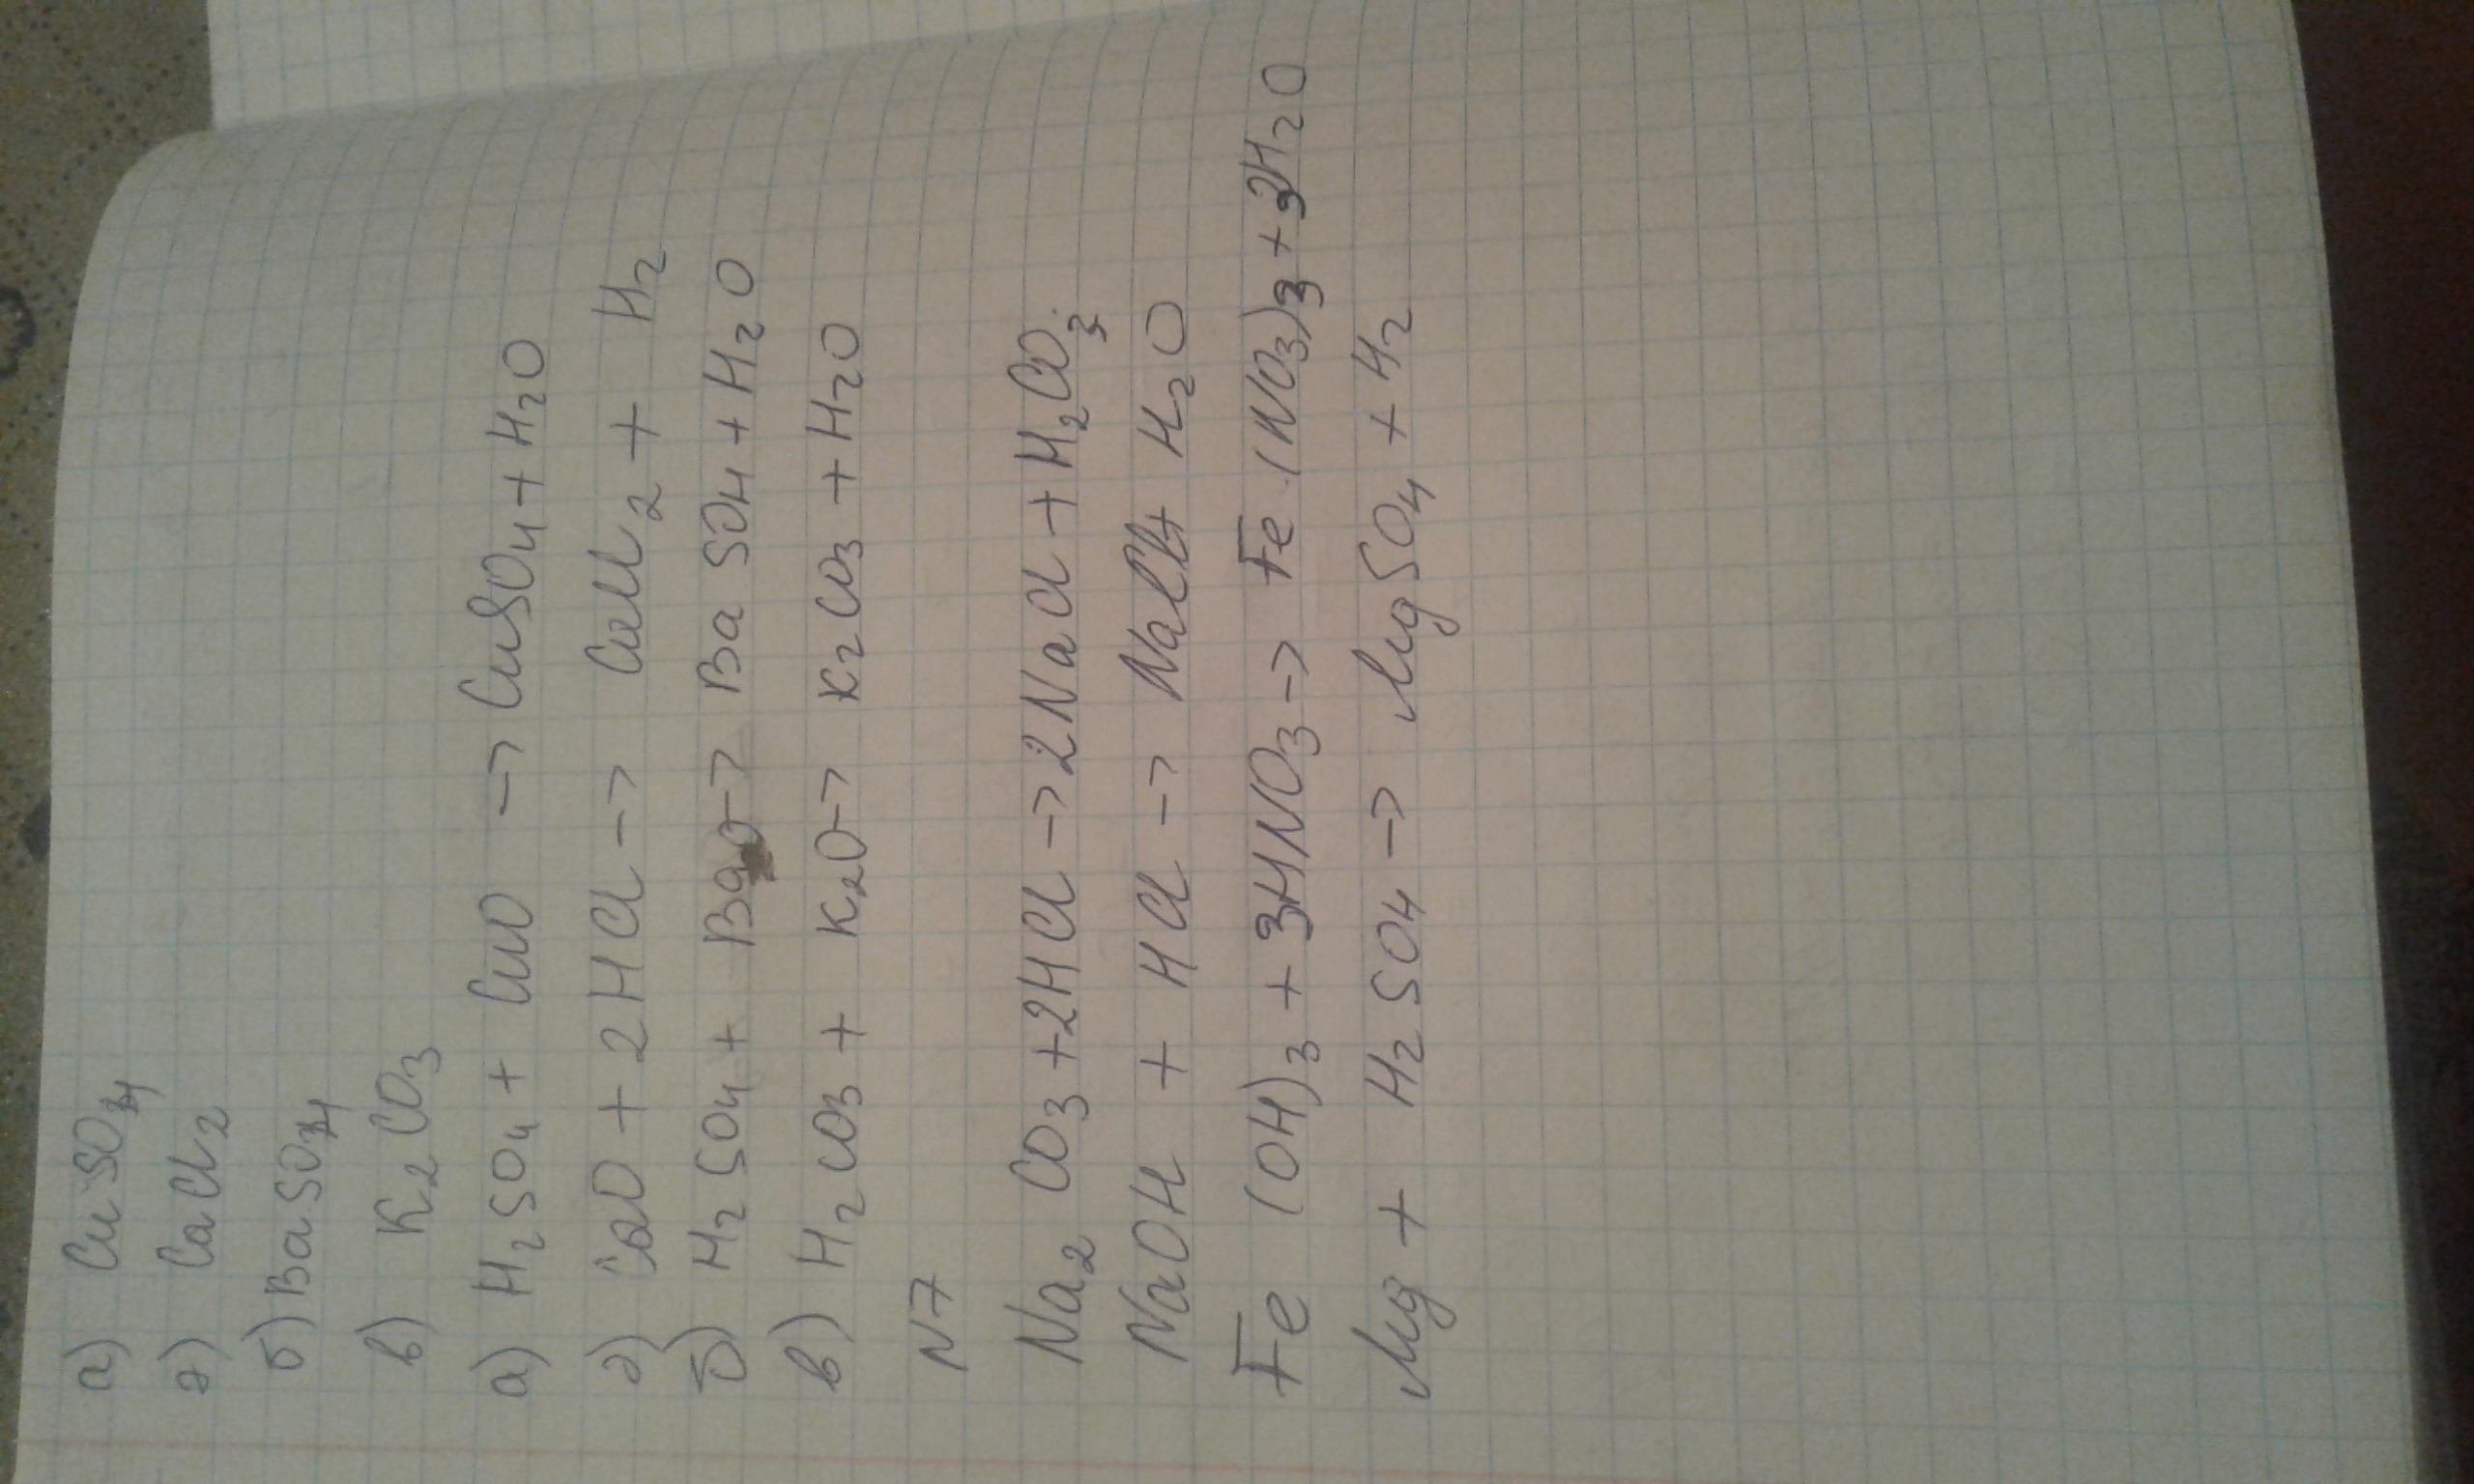 а) CuSO4
г) CaCl2
б) BaSO4
в) K2CO3
а) H2SO4 + CuO → CuSO4 + H2O
г) CaO + 2HCl → CaCl2 + H2
б) H2SO4 + BaO → BaSO4 + H2O
в) H2CO3 + K2O → K2CO3 + H2O
N7
Na2CO3 + 2HCl → 2NaCl + H2CO3
NaOH + HCl → NaCl + H2O
Fe(OH)3 + 3HNO3 → Fe(NO3)3 + 3H2O
Mg + H2SO4 → MgSO4 + H2